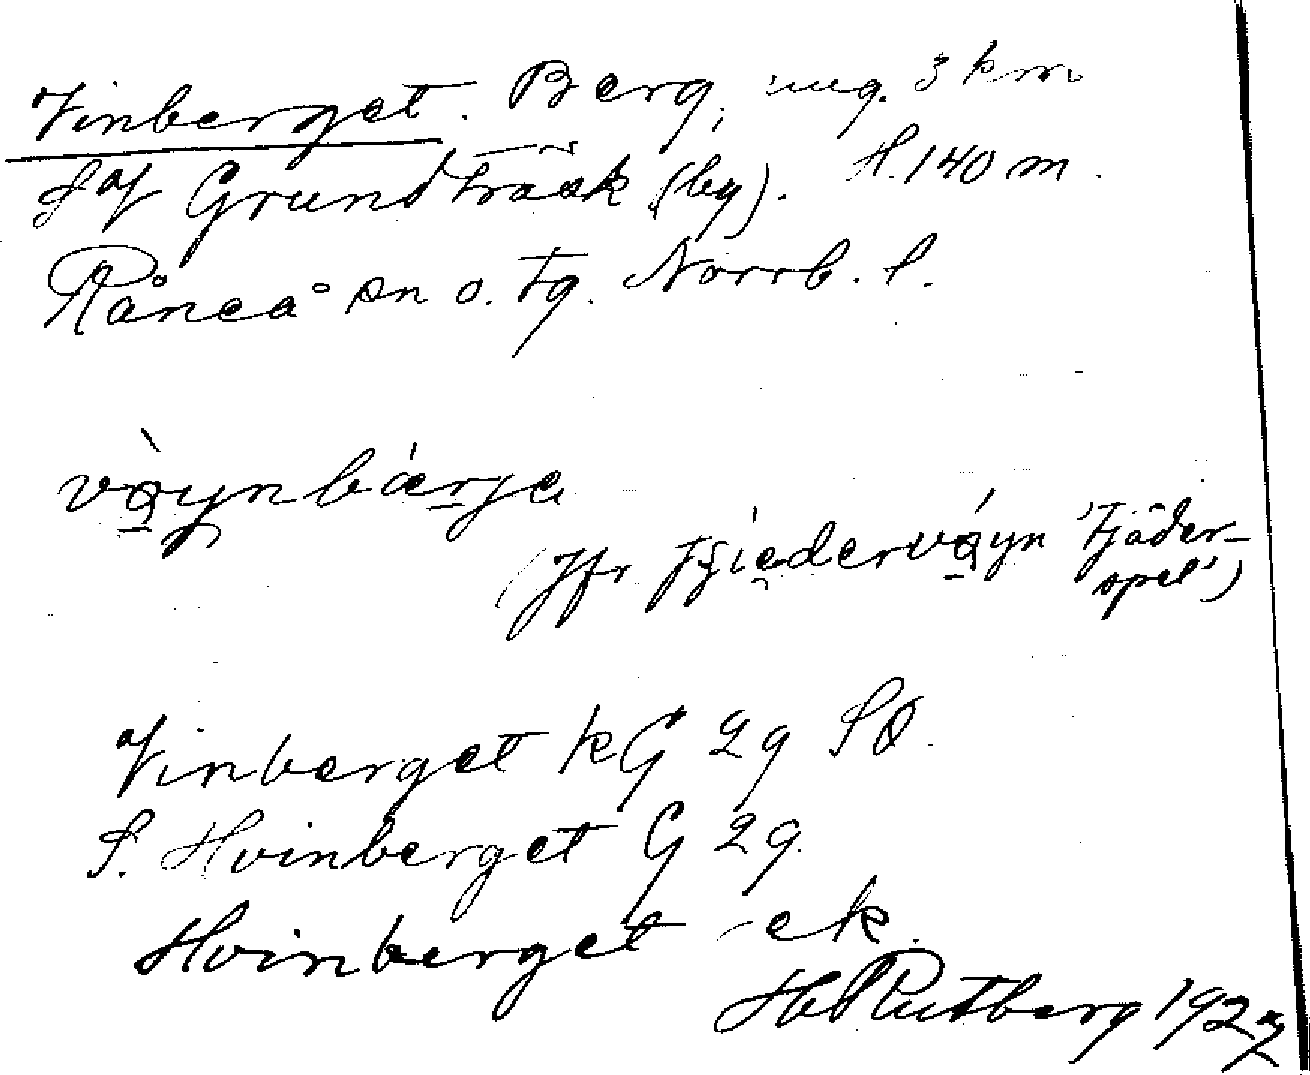 Vinberget. Berg, ung. 3 km
S of Grundträsk (by). H. 140 m.
Råneå sn o. tg. Norrb. l.
vạ̀ynbárje
(Jfr fjiedervạ́yn 'fjäder-
spel')
Vinberget kG 29 SO.
S. Hvinberget G 29.
Hvinberget ek.
H Rutberg 192